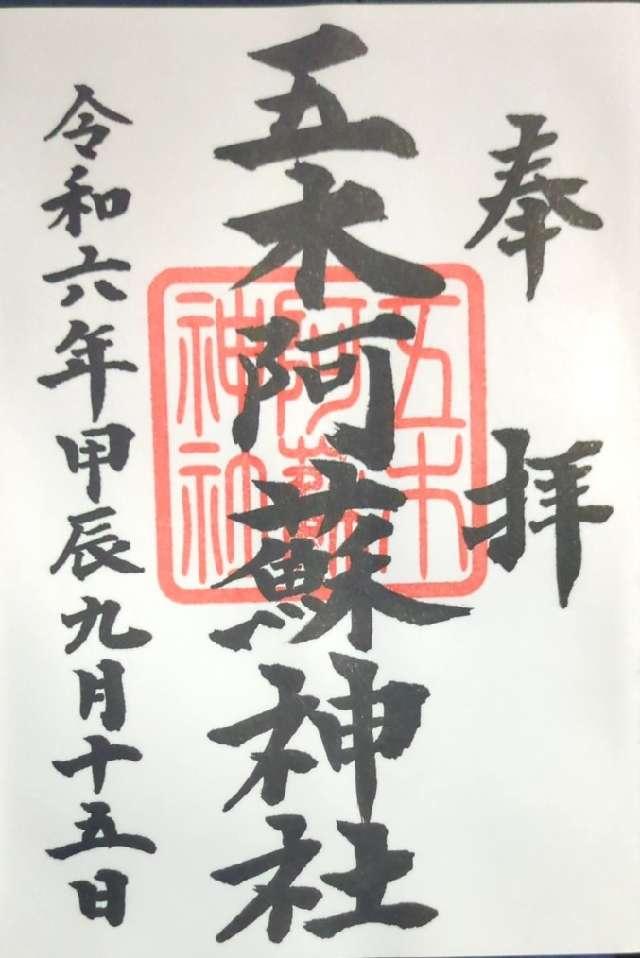 奉拝
五木阿蘇神社
五木
阿蘇
神社
令和六年甲辰九月十五日